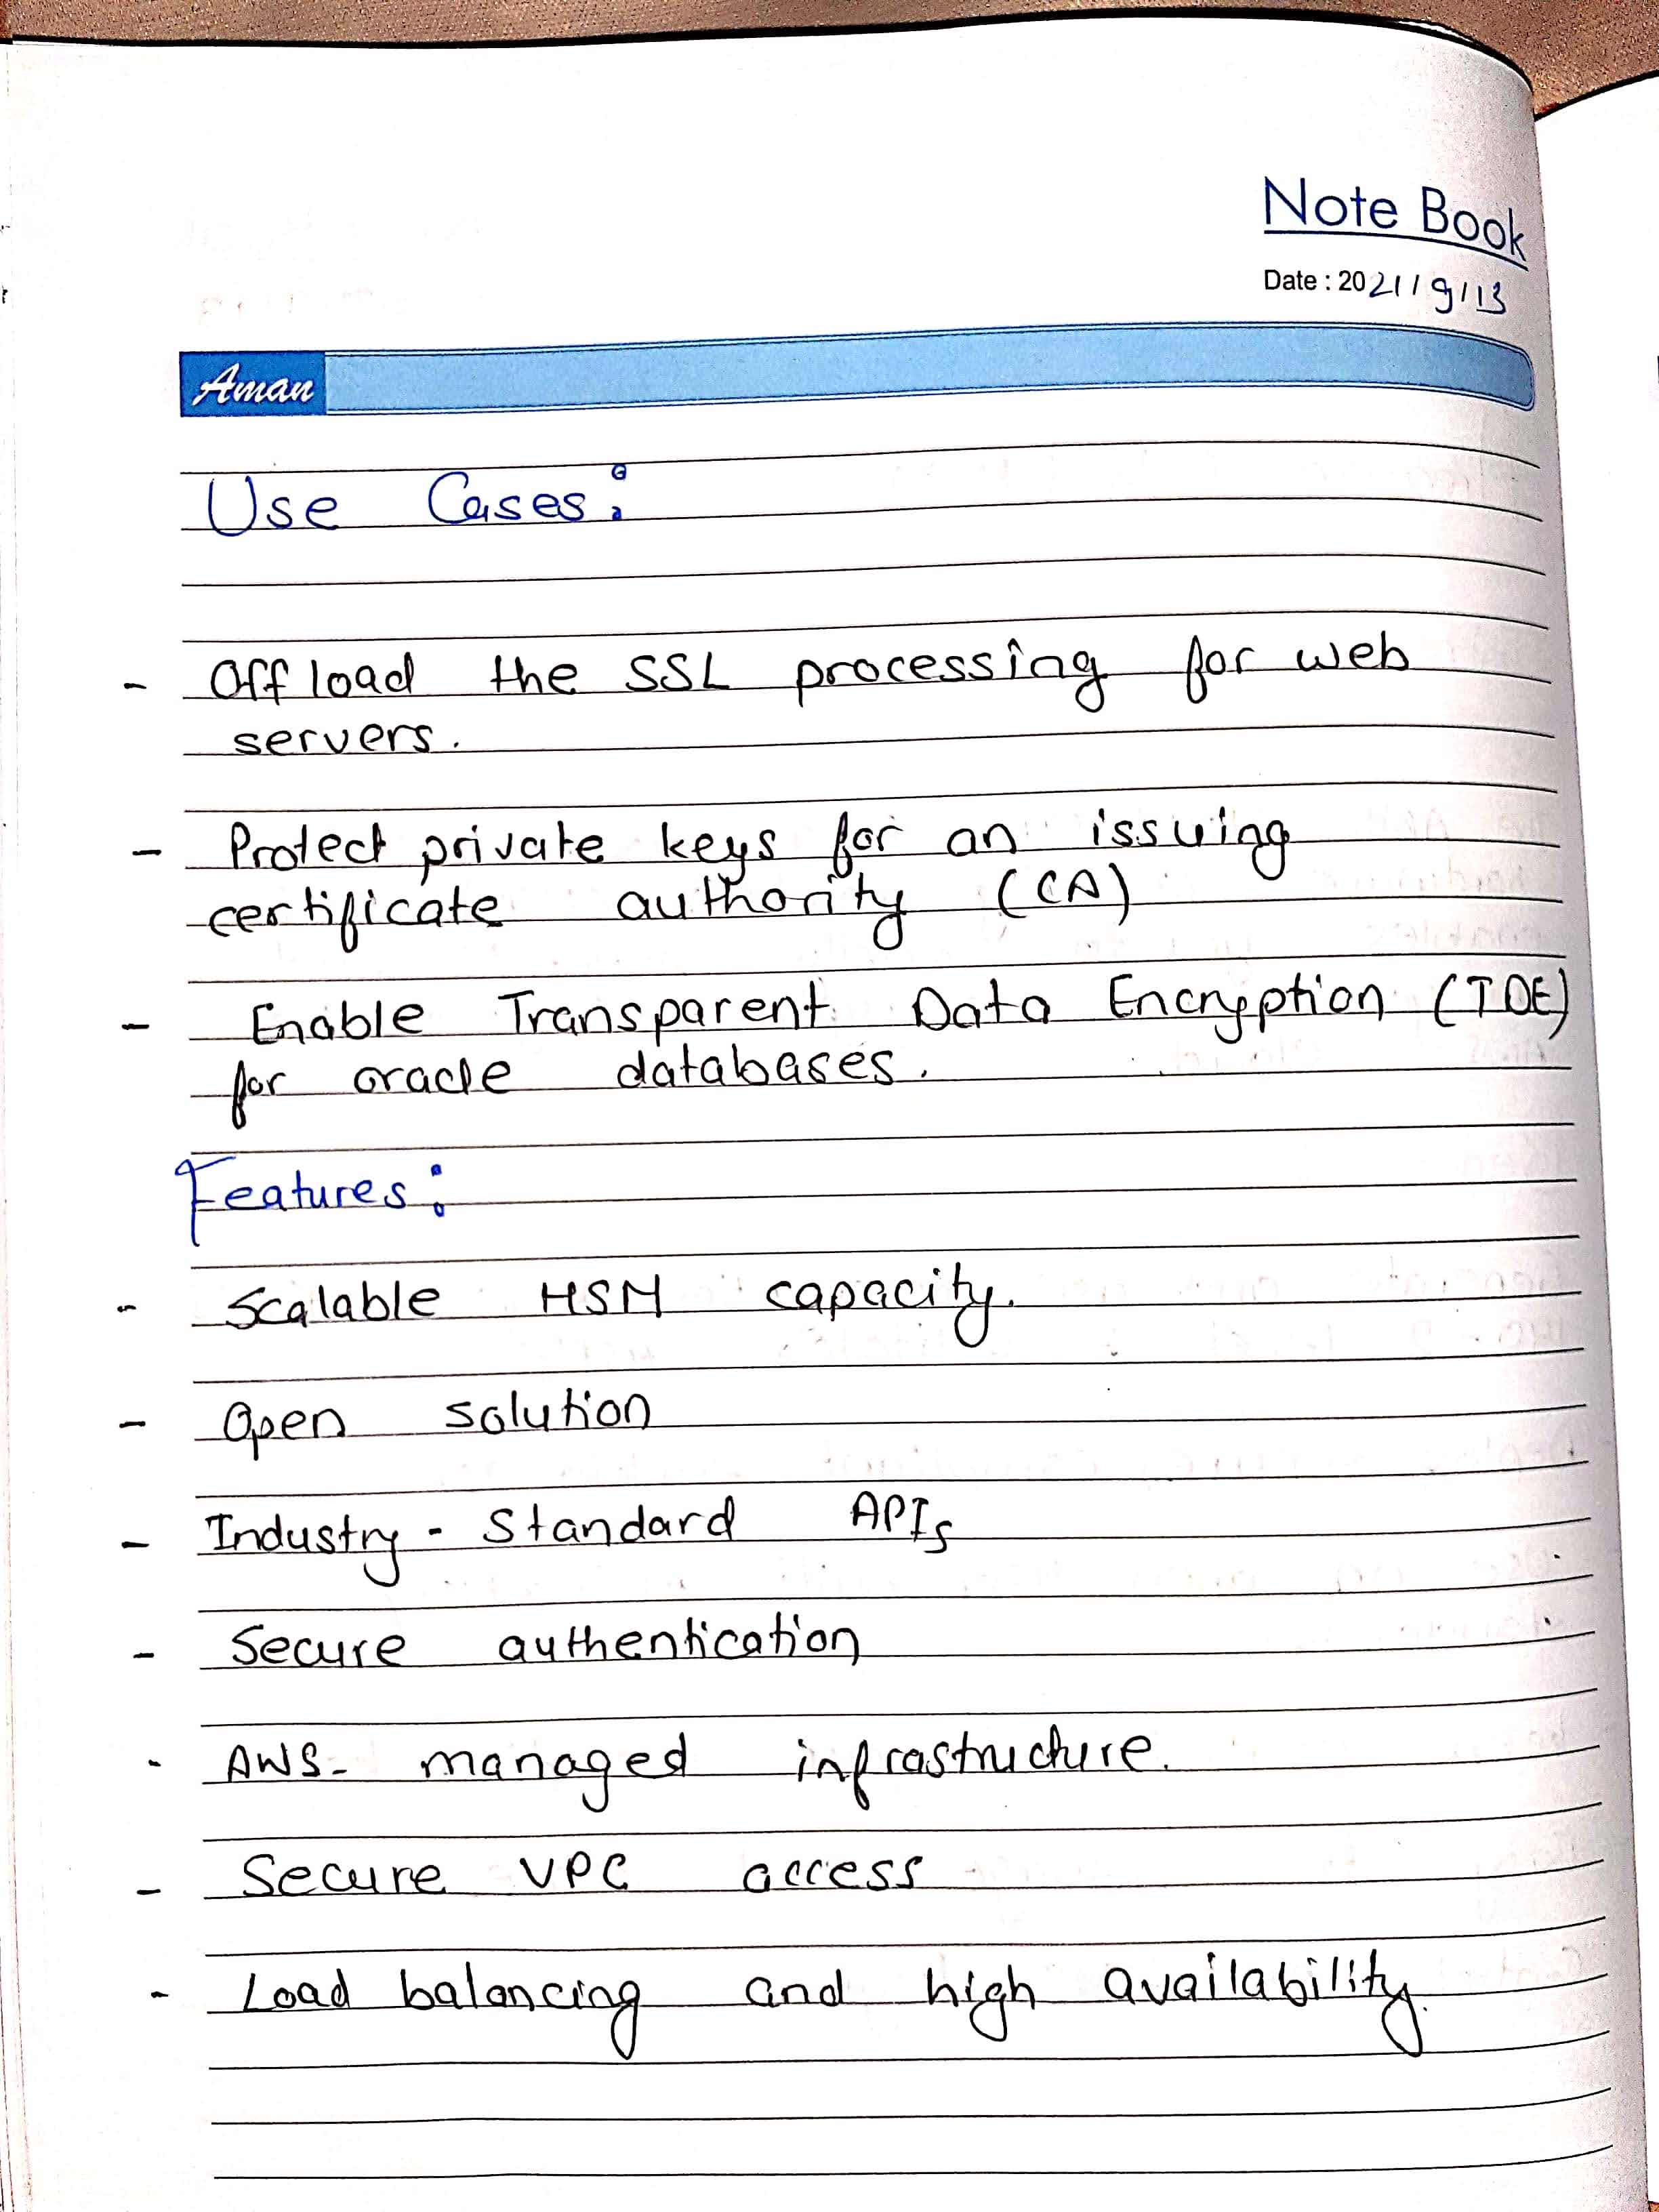 Note Book
Date : 2021/9/13
Aman
Use Cases:
- Off load the SSL processing for web
servers.
- Protect private keys for an issuing
certificate authority (CA)
- Enable Transparent Data Encryption (TDE)
for oracle databases.
Features:
- Scalable HSM capacity.
- Open solution
- Industry - Standard APIs
- Secure authentication
- AWS- managed infrastructure.
- Secure VPC access
- Load balancing and high availability.